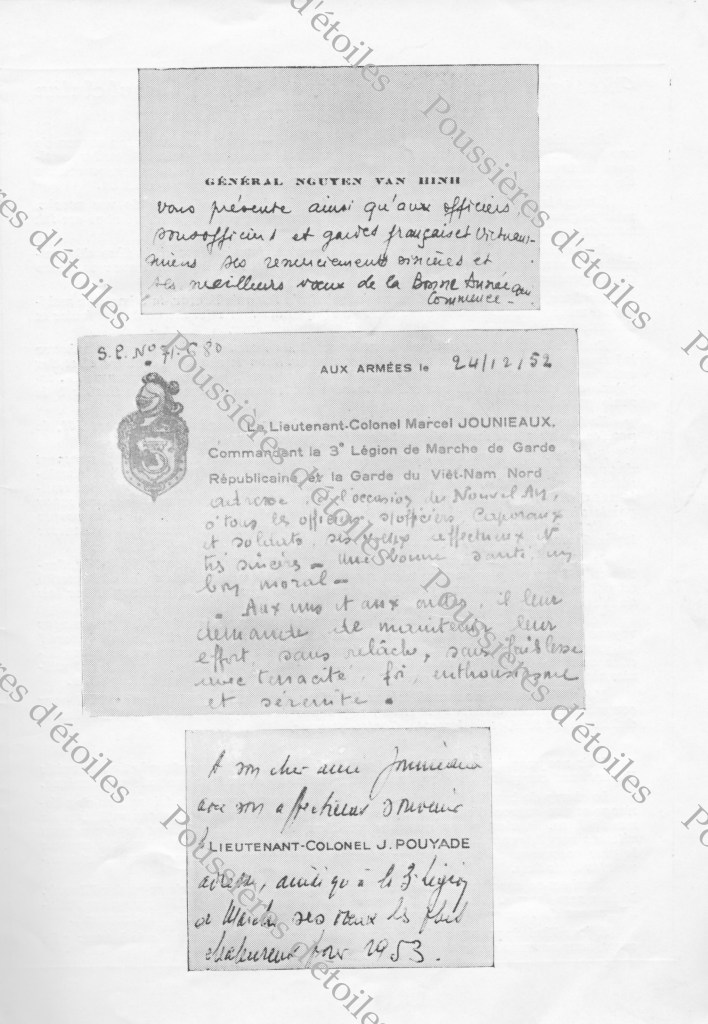 GÉNÉRAL NGUYEN VAN HINH
vous présente ainsi qu'aux officiers,
sousofficiers et gardes français et Vietnam-
miens ses remerciements sincères et
ses meilleurs vœux de la Bonne Année qui
Commence -
S.P. No 71.680
AUX ARMÉES le 24/12/52
3
Le Lieutenant-Colonel Marcel JOUNIEAUX,
Commandant la 3e Légion de Marche de Garde
Républicaine et la Garde du Viêt-Nam Nord
adresse, à l'occasion du Nouvel An,
à tous les officiers, s/officiers, Caporaux
et soldats, ses vœux affectueux et
très sincères - Une bonne santé, un
bon moral -
Aux uns et aux autres, il leur
demande de maintenir leur
effort, sans relâche, sans faiblesse
avec tenacité, foi, enthousiasme
et sérénité.
A son cher ami Jounieaux
avec son affectueux souvenir
LIEUTENANT-COLONEL J. POUYADE
adresse, ainsi qu'à la 3e Légion
de Marche ses vœux les plus
chaleureux pour 1953.
Poussières d'étoiles